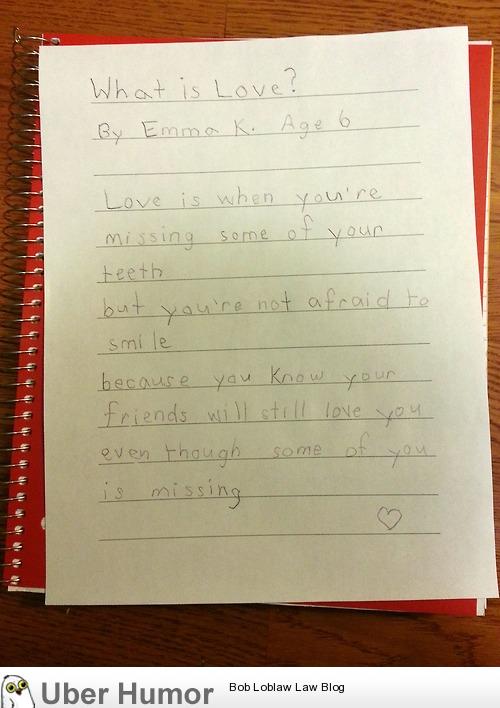 What is Love?
By Emma K. Age 6
Love is when you're
missing some of your
teeth
but you're not afraid to
smile
because you know your
friends will still love you
even though some of you
is missing
Uber Humor
Bob Loblaw Law Blog